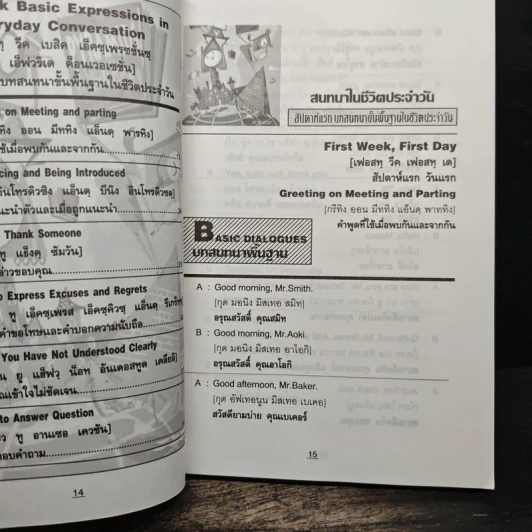 k Basic Expressions in
ryday Conversation
วีค เบสิค เอ็คซฺเพรซชั่นซฺ
เอ็ฟวริเด ค็อนเวอเซชั่น]
บทสนทนาขั้นพื้นฐานในชีวิตประจำวัน
on Meeting and parting
ทิง ออน มีททิง แอ็นดฺ พารทิง]
ใช้เมื่อพบกันและจากกัน
cing and Being Introduced
อินโทรดิวซิง แอ็นดฺ บีนิง อินโทรดิวซดฺ]
แนะนำตัวและเมื่อถูกแนะนำ
Thank Someone
ทู แธ็งคฺ ซัมวัน]
ล่าวขอบคุณ
o Express Excuses and Regrets
ทู เอ็คซฺเพรส เอ็คซฺคิวซฺ แอ็นดฺ รีเกร็ท
คำขอโทษและคำบอกความนับถือ
You Have Not Understood Clearly
ยู แฮ็ฟวฺ น็อท อันเดอสทูด เคลียลิ]
ณเข้าใจไม่ชัดเจน
to Answer Question
ทู อานเซอ เควชัน]
อบคำถาม
14
สนทนาในชีวิตประจำวัน
สัปดาห์แรก บทสนทนาขั้นพื้นฐานในชีวิตประจำวัน
First Week, First Day
[เฟอสทฺ วีค เฟอสทฺ เด]
สัปดาห์แรก วันแรก
Greeting on Meeting and Parting
[กรีทิง ออน มีททิง แอ็นดฺ พาททิง]
คำพูดที่ใช้เมื่อพบกันและจากกัน
BASIC DIALOGUES
บทสนทนาพื้นฐาน
A : Good morning, Mr.Smith.
[กุด มอนิง มิสเทอ สมิท]
อรุณสวัสดิ์ คุณสมิท
B : Good morning, Mr.Aoki.
[กุด มอนิง มิสเทอ อาโอกิ]
อรุณสวัสดิ์ คุณอาโอกิ
A : Good afternoon, Mr.Baker.
[กุด อัฟเทอนูน มิสเทอ เบเคอ]
สวัสดียามบ่าย คุณเบเคอร์
15